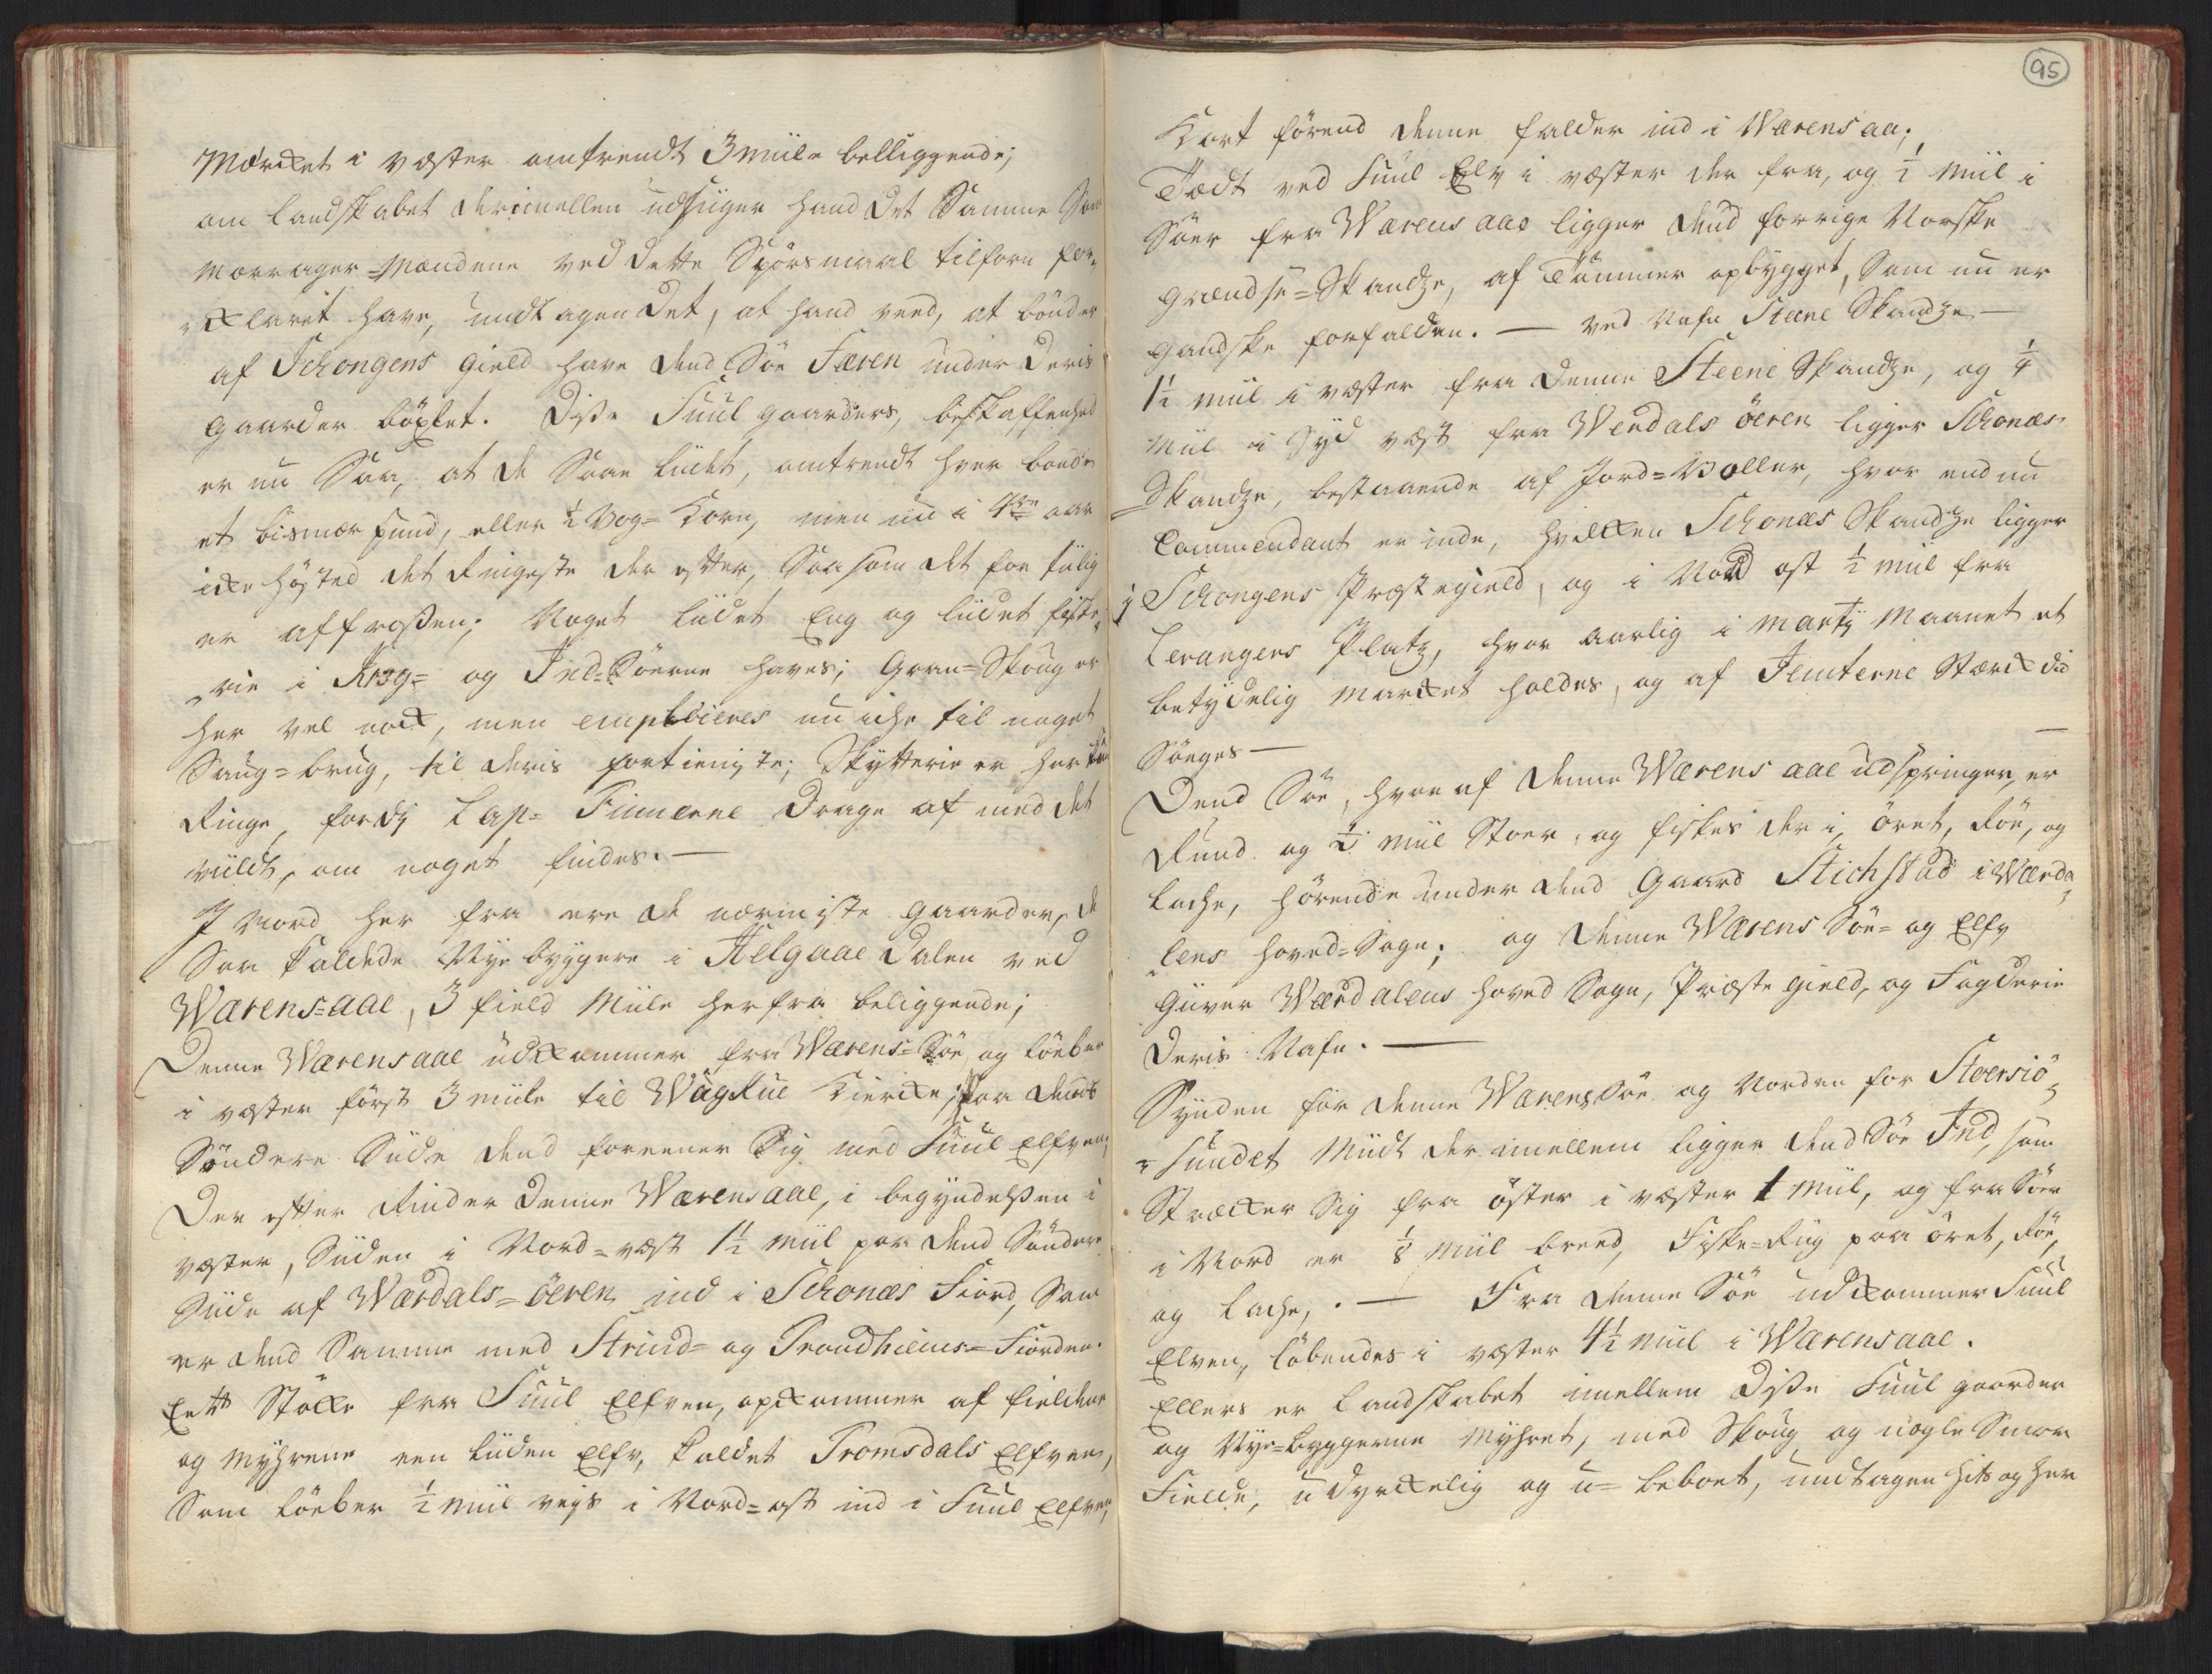 Mærcket i væster omtrendt 3 miile beliggende;
om landskabet derimellem udsiiger hand det Samme Som
Morrager-Mændene ved dette Spörsmaal tilforn for-
-klarit have, undtagen det, at hand veed, at bönder
af Schongens gield have dend Söe Færen under deris
gaarder böxlet. Disse Suul gaarders, beskaffenhed
er nu Saa, at de Saae lidet, omtrendt hver bonde
et bismer pund, eller ½ Vog-Korn, men nu i 4re aar
icke hösted det Ringeste der efter, Saasom det for tiilig
er affrossen; Noget lüdet Eng og lüdet fiske-
-rie i Kreg- og Ind-Söerne haves; Gran-Skoug er
her vel nock, men emploieres nu iche til noget
Saug-brug, til deris fortieniste; Skytterie er her
Ringe, fordj Lap-Finnerne Drage af med det
viildt, om noget findes. —
J Nord her fra ere de nærmiste gaarder, de
Saa kaldede Nye byggere i Helgaae Dalen ved
Wærens-aae, 3 field Miile herfra beliggende;
Denne Wærensaae udkommer fra Wærens-Söe, og löeber
i væster först 3 miile til Wugkue Kiercke, paa dends
Söndere Siide dend foreener Sig med Suul Elfven,
Der efter Rinder denne Wærensaae, i begyndelsen i
væster, Siiden i Nord-væst 1½ miil paa dend Söndere
Siide af Wærdals-öeren ind i Schonæs Fiord, Som
er dend Samme med Strind- og Trondhiems-Fiorden.
Eett Stöcke fra Suul Elfven, opkommer af fieldene
og myhrene een liiden Elfv, kaldet Tromsdals Elfven,
Som löeber ½ miil veys i Nord-ost ind i Suul Elfven,
95
Kort förend denne falder ind i Wærensaa;
Tædt ved Suul Elv i væster der fra, og ½ miil i
Söer fra Wærens aae ligger dend forrige Norske
grændse-Skandze, af Tömmer opbygget, Som nu er
gandske forfalden. — ved Nafn Steene Skandze —
1½ miil i væster fra denne Steene Skandze, og ¼
miil i Syd væst fra Werdals öeren ligger Schonæs
-Skandze, bestaaende af Jord-Voller, hvor end nu
Commendant er inde, hvilcken Schonæs Skandze ligger
i Schongens Præstegield, og i Nord ost ½ miil fra
Levangers Platz, hvor aarlig i Martij Maanet et
betydelig marcket holdes, og af Jemterne Stærck did
Söeges — —
Dend Söe, hvoraf denne Wærens aae udspringer, er
Rund og ½ miil Stoer, og fiskes der i, öret, Röe, og
lache, hörende under dend gaard Stichstad i Wærda-
-lens hoved-Sogn; og denne Wærens Söe- og Elfv
giiver Wærdalens hoved Sogn, Præste gield, og Fogderie
deris Nafn. —
Synden för denne Wærens Söe og Norden for Stoersiö-
-sundet Miidt der imellem ligger dend Söe Ind, som
Strecker Sig fra öster i væster 1 miil, og fra Söer
i Nord er ⅛ miil breed, Fiske-Riig paa öret, Röe,
og lache, . — Fra denne Söe udkommer Suul
Elven, löbendes i væster 4½ miil i Wærensaae.
Ellers er landskabet imellem disse Suul gaarder
og Nye-byggerne Myhret, med Skoug og nogle Smaa
Fielde, udyrckelig og u-beboet, undtagen hits og her